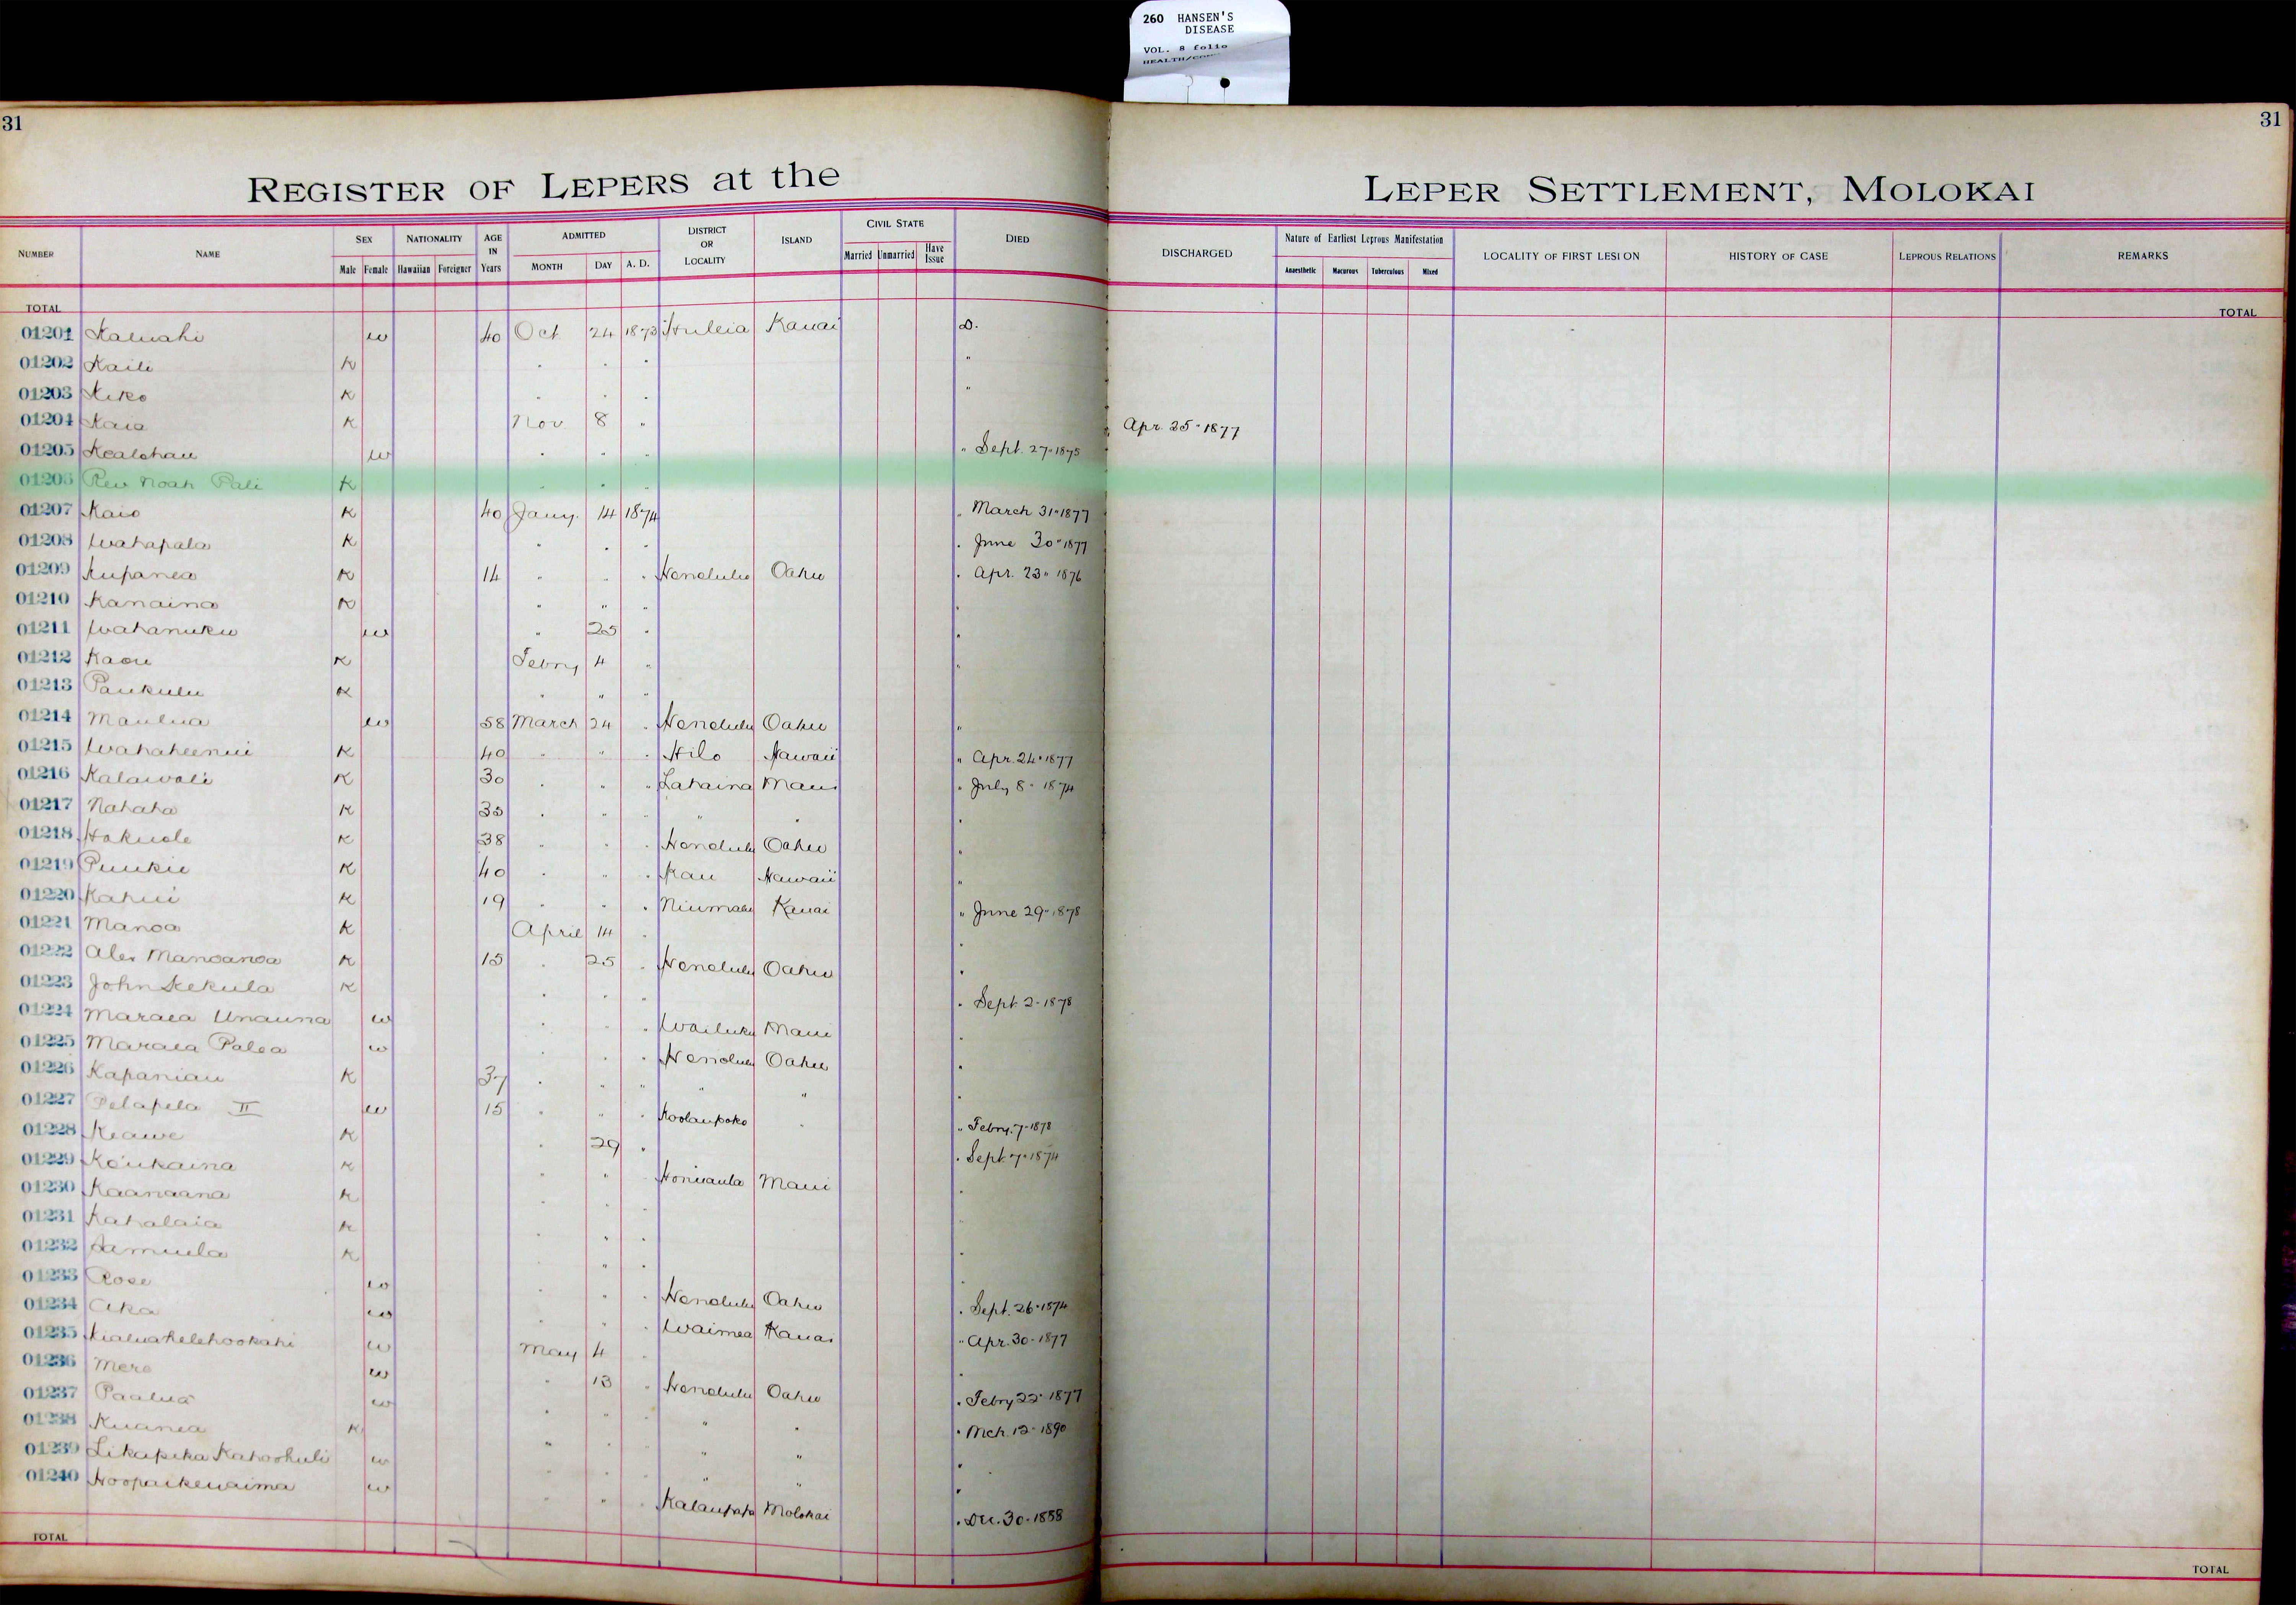 260 HANSEN'S
DISEASE
VOL. 8 folio
31
31
REGISTER OF LEPERS at the
LEPER SETTLEMENT, MOLOKAI
NUMBER NAME SEX NATIONALITY AGE IN Years ADMITTED DISTRICT OR LOCALITY ISLAND CIVIL STATE DIED DISCHARGED Nature of Earliest Leprous Manifestation LOCALITY OF FIRST LESION HISTORY OF CASE LEPROUS RELATIONS REMARKS
Male Female Hawaiian Foreigner MONTH DAY A. D. Married Unmarried Have Issue Anaesthetic Macurous Tuberculous Mixed
TOTAL TOTAL
01201 Kaluahi w 40 Oct 24 1873 Huleia Kauai D.
01202 Kaili K " " " "
01203 Kiko K " " " "
01204 Kaia K Nov 8 " Apr. 25" 1877
01205 Kealohau w " " " " Sept. 27" 1875
01206 Rev Noah Pali K " " "
01207 Kaio K 40 Jany. 14 1874 " March 31" 1877
01208 Wahapala K " " " " June 30" 1877
01209 Kupanea K 14 " " " Honolulu Oahu " Apr. 23" 1876
01210 Kanaina K " " " "
01211 Wahanuku w " 25 " "
01212 Kaou K Febry 4 " "
01213 Paukulu K " " "
01214 Maulua w 58 March 24 " Honolulu Oahu "
01215 Wahaheenui K 40 " " " Hilo Hawaii " Apr. 24" 1877
01216 Kalawali K 30 " " " Lahaina Maui " July 8" 1874
01217 Nahaha K 35 " " " " " "
01218 Hokuole K 38 " " " Honolulu Oahu "
01219 Puukii K 40 " " " Kau Hawaii "
01220 Kahui K 19 " " " Niumalu Kauai " June 29" 1878
01221 Manoa K April 14 " "
01222 Alex Manoanoa K 15 " 25 " Honolulu Oahu "
01223 John Kekula K " " " " Sept 2" 1878
01224 Maraea Unauna w " " " Wailuku Maui "
01225 Maraea Palea w " " " Honolulu Oahu "
01226 Kapaniau K 37 " " " " " "
01227 Pelapela II w 15 " " " Koolaupoko " " Febry. 7" 1878
01228 Keawe K " 29 " " Sept 7" 1874
01229 Koukaina K " " " Honuaula Maui "
01230 Kaanaana K " " "
01231 Kahalaia K " " " "
01232 Samuela K " " "
01233 Rose w " " " Honolulu Oahu " Sept. 26" 1874
01234 Aka w " " " Waimea Kauai " Apr. 30" 1877
01235 Kialuahelehookahi w May 4 " "
01236 Mere w " 13 " Honolulu Oahu " Febry 22" 1877
01237 Paalua w " " " " " " Mch. 12" 1890
01238 Kuanea K " " " " " "
01239 Likapeka Kahoohuli w " " " " " "
01240 Hoopaikewaima w " " " Kalaupapa Molokai " Dec. 30" 1888
TOTAL TOTAL